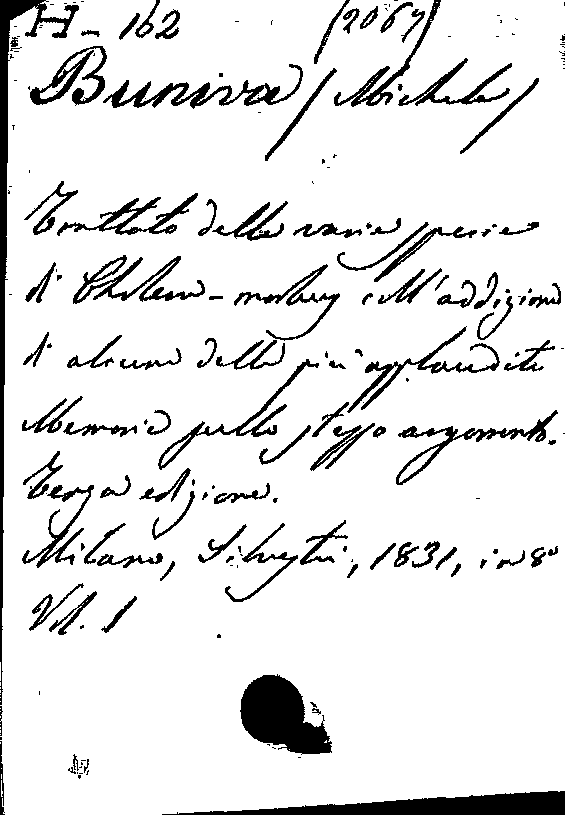 H - 162 (2067)
Buniva (Michele)
Trattato delle varie specie
di Cholera-morbus coll'addizione
di alcune delle più applaudite
Memorie sullo stesso argomento.
Terza edizione.
Milano, Silvestri, 1831, in 8º
Vol. 1